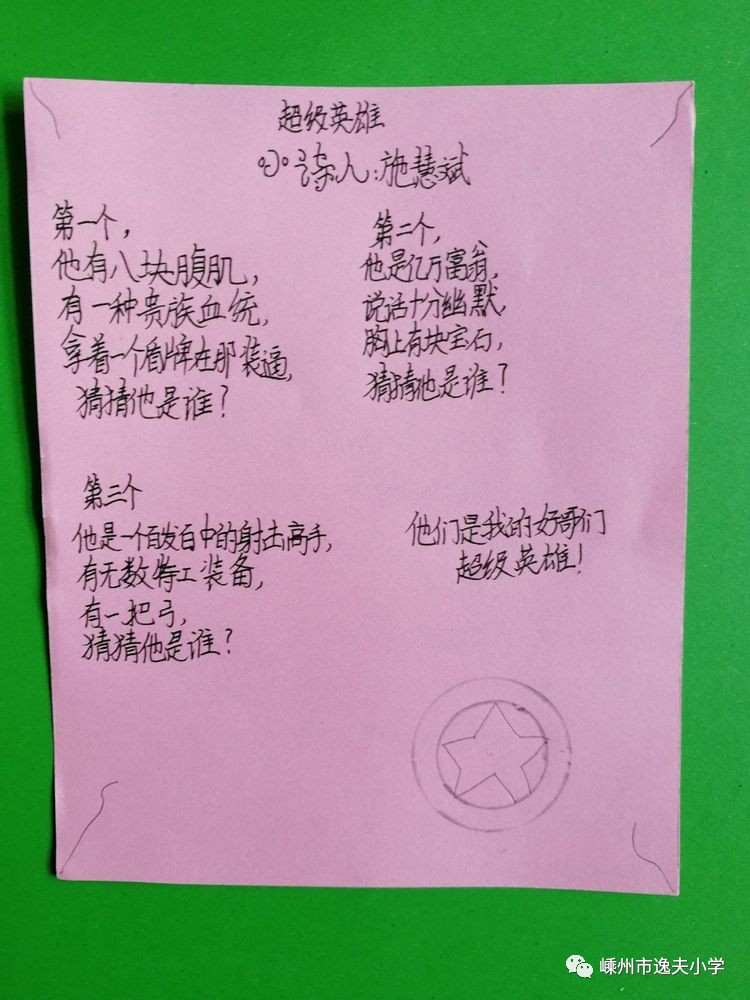 超级英雄
小诗人:施慧斌
第一个,
他有八块腹肌,
有一种贵族血统,
拿着一个盾牌在那装逼,
猜猜他是谁?
第二个,
他是亿万富翁,
说话十分幽默,
胸上有块宝石,
猜猜他是谁?
第三个
他是一个百发百中的射击高手,
有无数特工装备,
有一把弓,
猜猜他是谁?
他们是我的好哥们
超级英雄!
嵊州市逸夫小学